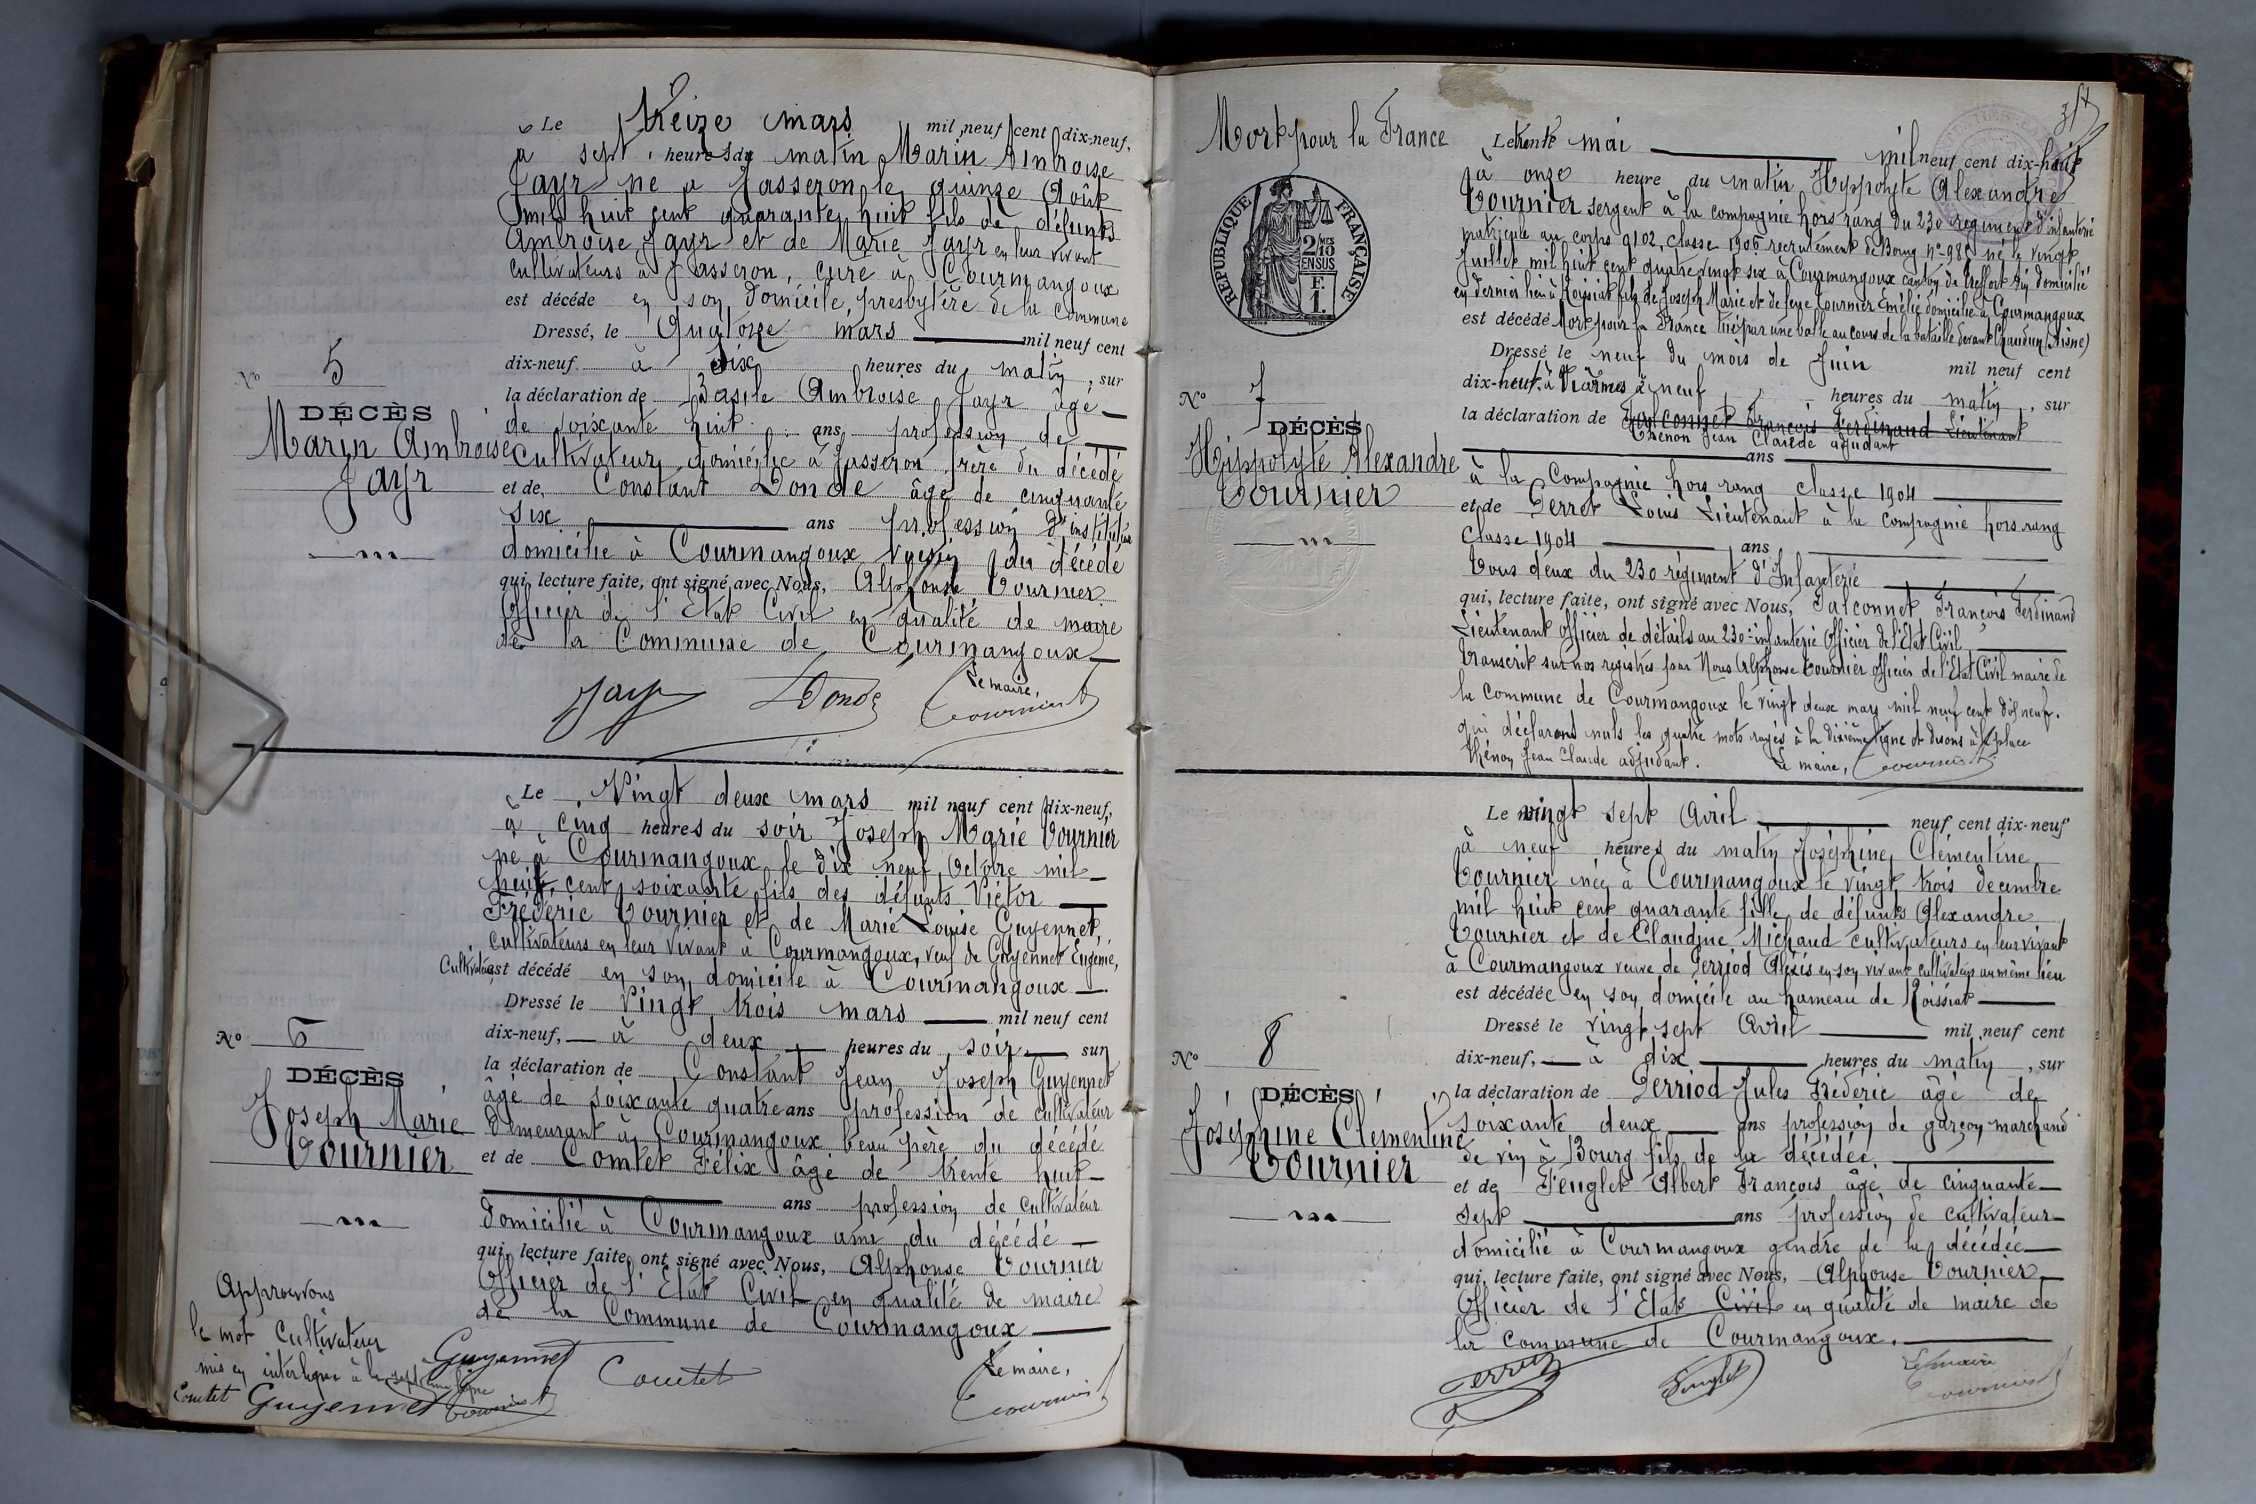 Le Treize mars mil neuf cent dix-neuf,
à sept heures du matin Marin Ambroise
Jayr né à Jasseron le quinze Août
mil huit cent quarante huit fils de défunts
Ambroise Jayr et de Marie Jayr en leur vivant
cultivateurs à Jasseron, curé à Courmangoux
est décédé en son domicile, presbytère de la commune
Dressé, le Quatorze mars mil neuf cent
dix-neuf à dix heures du matin, sur
la déclaration de Basile Ambroise Jayr âgé
de soixante huit ans profession de
cultivateur domicilié à Jasseron frère du décédé
et de Constant Donde âgé de cinquante
six ans profession d'instituteur
domicilié à Courmangoux voisin du décédé
qui, lecture faite, ont signé avec Nous, Alphonse Tournier
Officier de l'Etat Civil en qualité de maire
de la Commune de Courmangoux
Jayr Donde Le maire, Tournier
No 5
DÉCÈS
Marin Ambroise
Jayr
Le Vingt deux mars mil neuf cent dix-neuf,
à cinq heures du soir Joseph Marie Tournier
né à Courmangoux le dix neuf Octobre mil
huit cent soixante fils des défunts Victor
Fréderic Tournier et de Marie Louise Guyennet,
cultivateurs en leur vivant à Courmangoux, veuf de Guyennet Eugénie,
Cultivateur est décédé en son domicile à Courmangoux.
Dressé le Vingt trois mars mil neuf cent
dix-neuf, à deux heures du soir sur
la déclaration de Constant Jean Joseph Guyennet
âgé de soixante quatre ans profession de cultivateur
demeurant à Courmangoux beau père du décédé
et de Comtet Félix âgé de trente huit
ans profession de cultivateur
domicilié à Courmangoux ami du décédé
qui, lecture faite, ont signé avec Nous, Alphonse Tournier
Officier de l'Etat Civil en qualité de maire
de la Commune de Courmangoux
Guyennet Comtet Le maire, Tournier
No 6
DÉCÈS
Joseph Marie
Tournier
Approuvons
le mot Cultivateur
mis en interligne à la septième ligne
Comtet Guyennet Tournier
Mort pour la France
RÉPUBLIQUE FRANÇAISE
2/10 MES
EN SUS
1 F.
Le trente mai mil neuf cent dix-huit
à onze heure du matin Hippolyte Alexandre
Tournier sergent à la compagnie hors rang du 230 régiment d'infanterie
matricule au corps 9102, classe 1906 recrutement de Bourg no 985 né le vingt
Juillet mil huit cent quatre vingt six à Courmangoux canton de Treffort Ain domicilié
en dernier lieu à Roissiat fils de Joseph Marie et de feue Tournier Emélie domicilié à Courmangoux
est décédé Mort pour la France tué par une balle au cours de la bataille devant Chaudun (Aisne)
Dressé le neuf du mois de Juin mil neuf cent
dix-huit, à Viarmes à neuf heures du matin, sur
la déclaration de Falconnet François Ferdinand Lieutenant
Thénon Jean Claude adjudant
ans
à la Compagnie hors rang classe 1904
et de Perrot Louis Lieutenant à la compagnie hors rang
classe 1904 ans
Tous deux du 230 régiment d'Infanterie
qui, lecture faite, ont signé avec Nous, Falconnet François Ferdinand
Lieutenant Officier de détails au 230e infanterie Officier de l'Etat Civil
Transcrit sur nos registres par Nous Alphonse Tournier Officier de l'Etat Civil maire de
la Commune de Courmangoux le vingt deux mars mil neuf cent dix neuf.
qui déclarons nuls les quatre mots rayés à la dixième ligne et disons à la place
Thénon Jean Claude adjudant. Le maire, Tournier
No 7
DÉCÈS
Hippolyte Alexandre
Tournier
Le vingt sept Avril neuf cent dix-neuf
à neuf heures du matin Joséphine, Clémentine
Tournier née à Courmangoux le vingt trois décembre
mil huit cent quarante fille de défunts Alexandre
Tournier et de Claudine Michaud cultivateurs en leur vivant
à Courmangoux veuve de Perriod Alexis en son vivant cultivateur au même lieu
est décédée en son domicile au hameau de Roissiat
Dressé le vingt sept Avril mil neuf cent
dix-neuf, à dix heures du matin, sur
la déclaration de Perriod Jules Fréderic âgé de
soixante deux ans profession de garçon marchand
de vin à Bourg fils de la décédée
et de Feuglet Albert François âgé de cinquante
sept ans profession de cultivateur
domicilié à Courmangoux gendre de la décédée
qui, lecture faite, ont signé avec Nous, Alphonse Tournier
Officier de l'Etat Civil en qualité de maire de
la commune de Courmangoux.
Perriod Feuglet Le maire Tournier
No 8
DÉCÈS
Joséphine Clémentine
Tournier